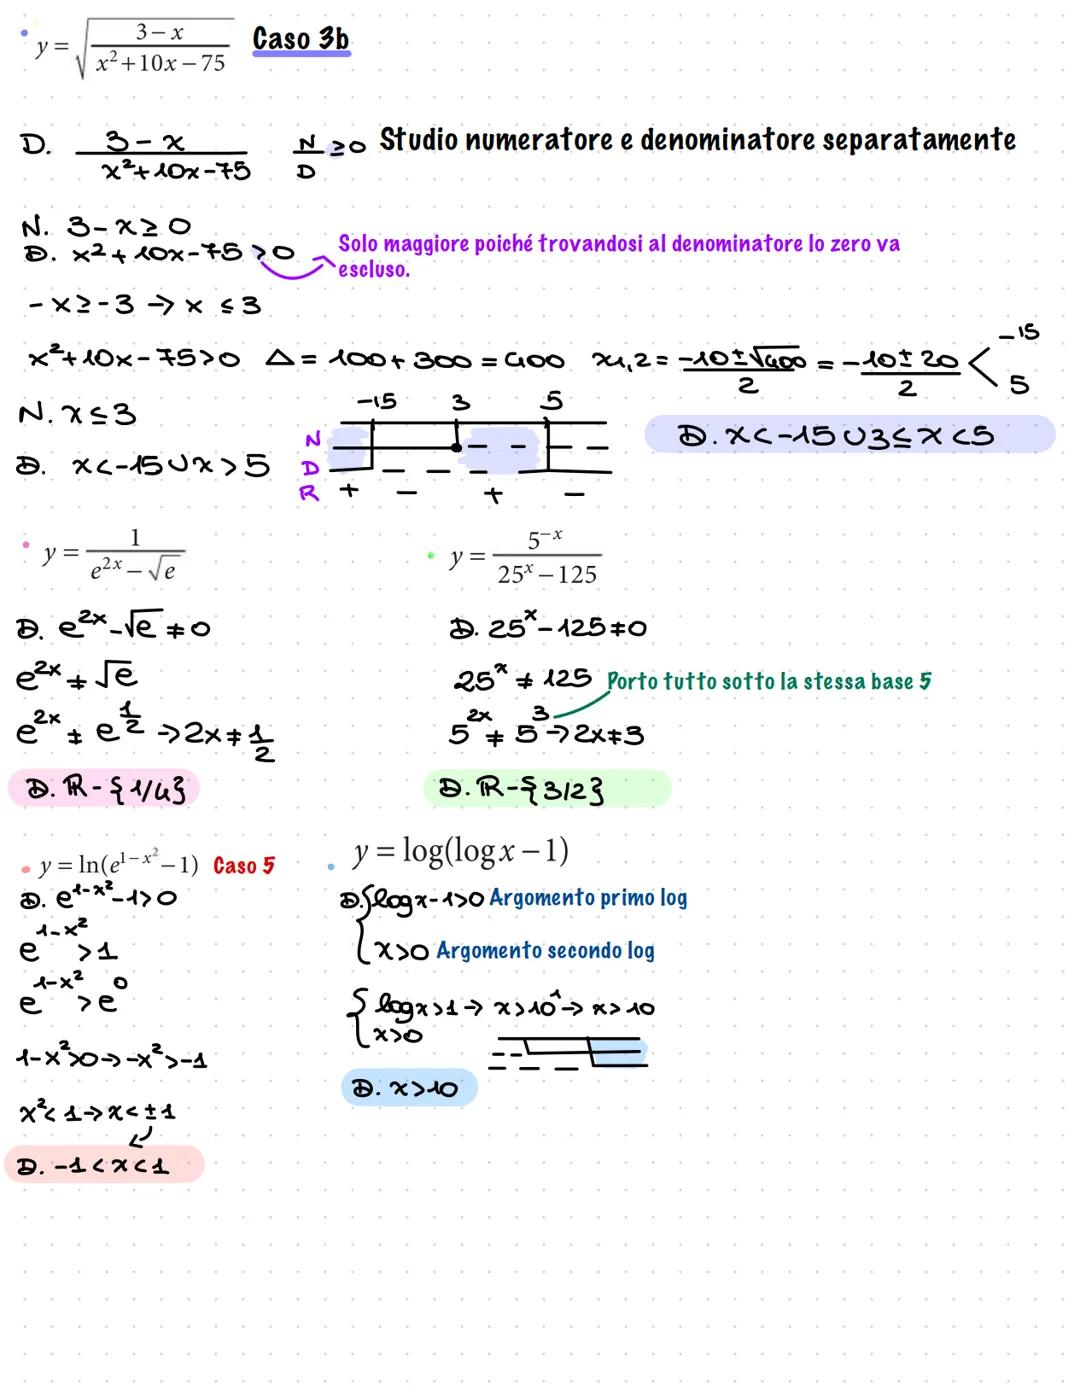 • y = √((3 − x)/(x² + 10x − 75)) Caso 3b
D. (3 − x)/(x² + 10x − 75) N/D ≥ 0 Studio numeratore e denominatore separatamente
N. 3 − x ≥ 0
D. x² + 10x − 75 > 0 → Solo maggiore poiché trovandosi al denominatore lo zero va
escluso.
− x ≥ −3 → x ≤ 3
x² + 10x − 75 > 0 Δ = 100 + 300 = 400 x1,2 = (−10 ± √400)/2 = (−10 ± 20)/2 < −15 5
N. x ≤ 3
D. x < −15 ∪ x > 5
−15 3 5
N − − − −
D − − − − −
R + − + −
D. x < −15 ∪ 3 ≤ x < 5
• y = 1/(e^2x − √e)
D. e^2x − √e ≠ 0
e^2x ≠ √e
e^2x ≠ e^1/2 → 2x ≠ 1/2
D. ℝ − {1/4}
• y = 5^−x/(25^x − 125)
D. 25^x − 125 ≠ 0
25^x ≠ 125 Porto tutto sotto la stessa base 5
5^2x ≠ 5^3 → 2x ≠ 3
D. ℝ − {3/2}
• y = ln(e^(1−x²) − 1) Caso 5
D. e^(1−x²) − 1 > 0
e^(1−x²) > 1
e^(1−x²) > e^0
1 − x² > 0 → −x² > −1
x² < 1 → x < ±1
D. −1 < x < 1
• y = log(log x − 1)
D. { log x − 1 > 0 Argomento primo log
{ x > 0 Argomento secondo log
{ log x > 1 → x > 10^1 → x > 10
{ x > 0
D. x > 10